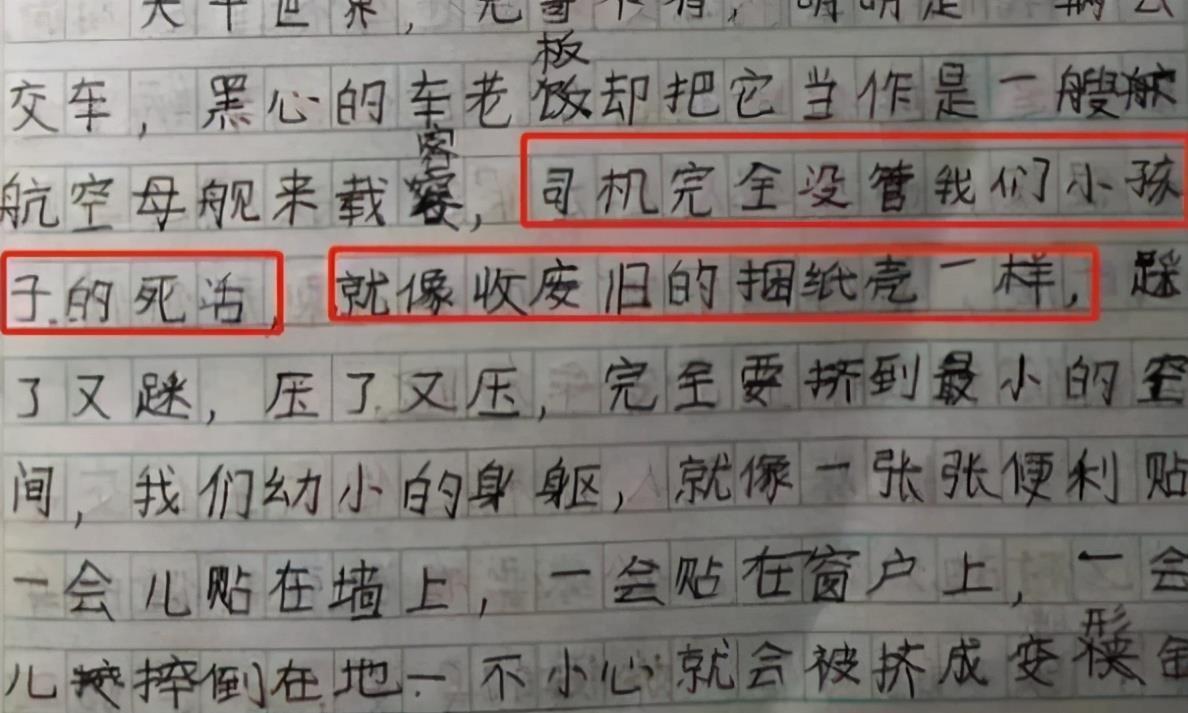 大千世界，无奇不有，明明是一辆公
交车，黑心的车老板却把它当作是一艘
航空母舰来载客，司机完全没管我们小孩
子的死活，就像收废旧的捆纸壳一样，踩
了又踩，压了又压，完全要挤到最小的空
间，我们幼小的身躯，就像一张张便利贴
一会儿贴在墙上，一会贴在窗户上，一会
儿摔倒在地一不小心就会被挤成变形金